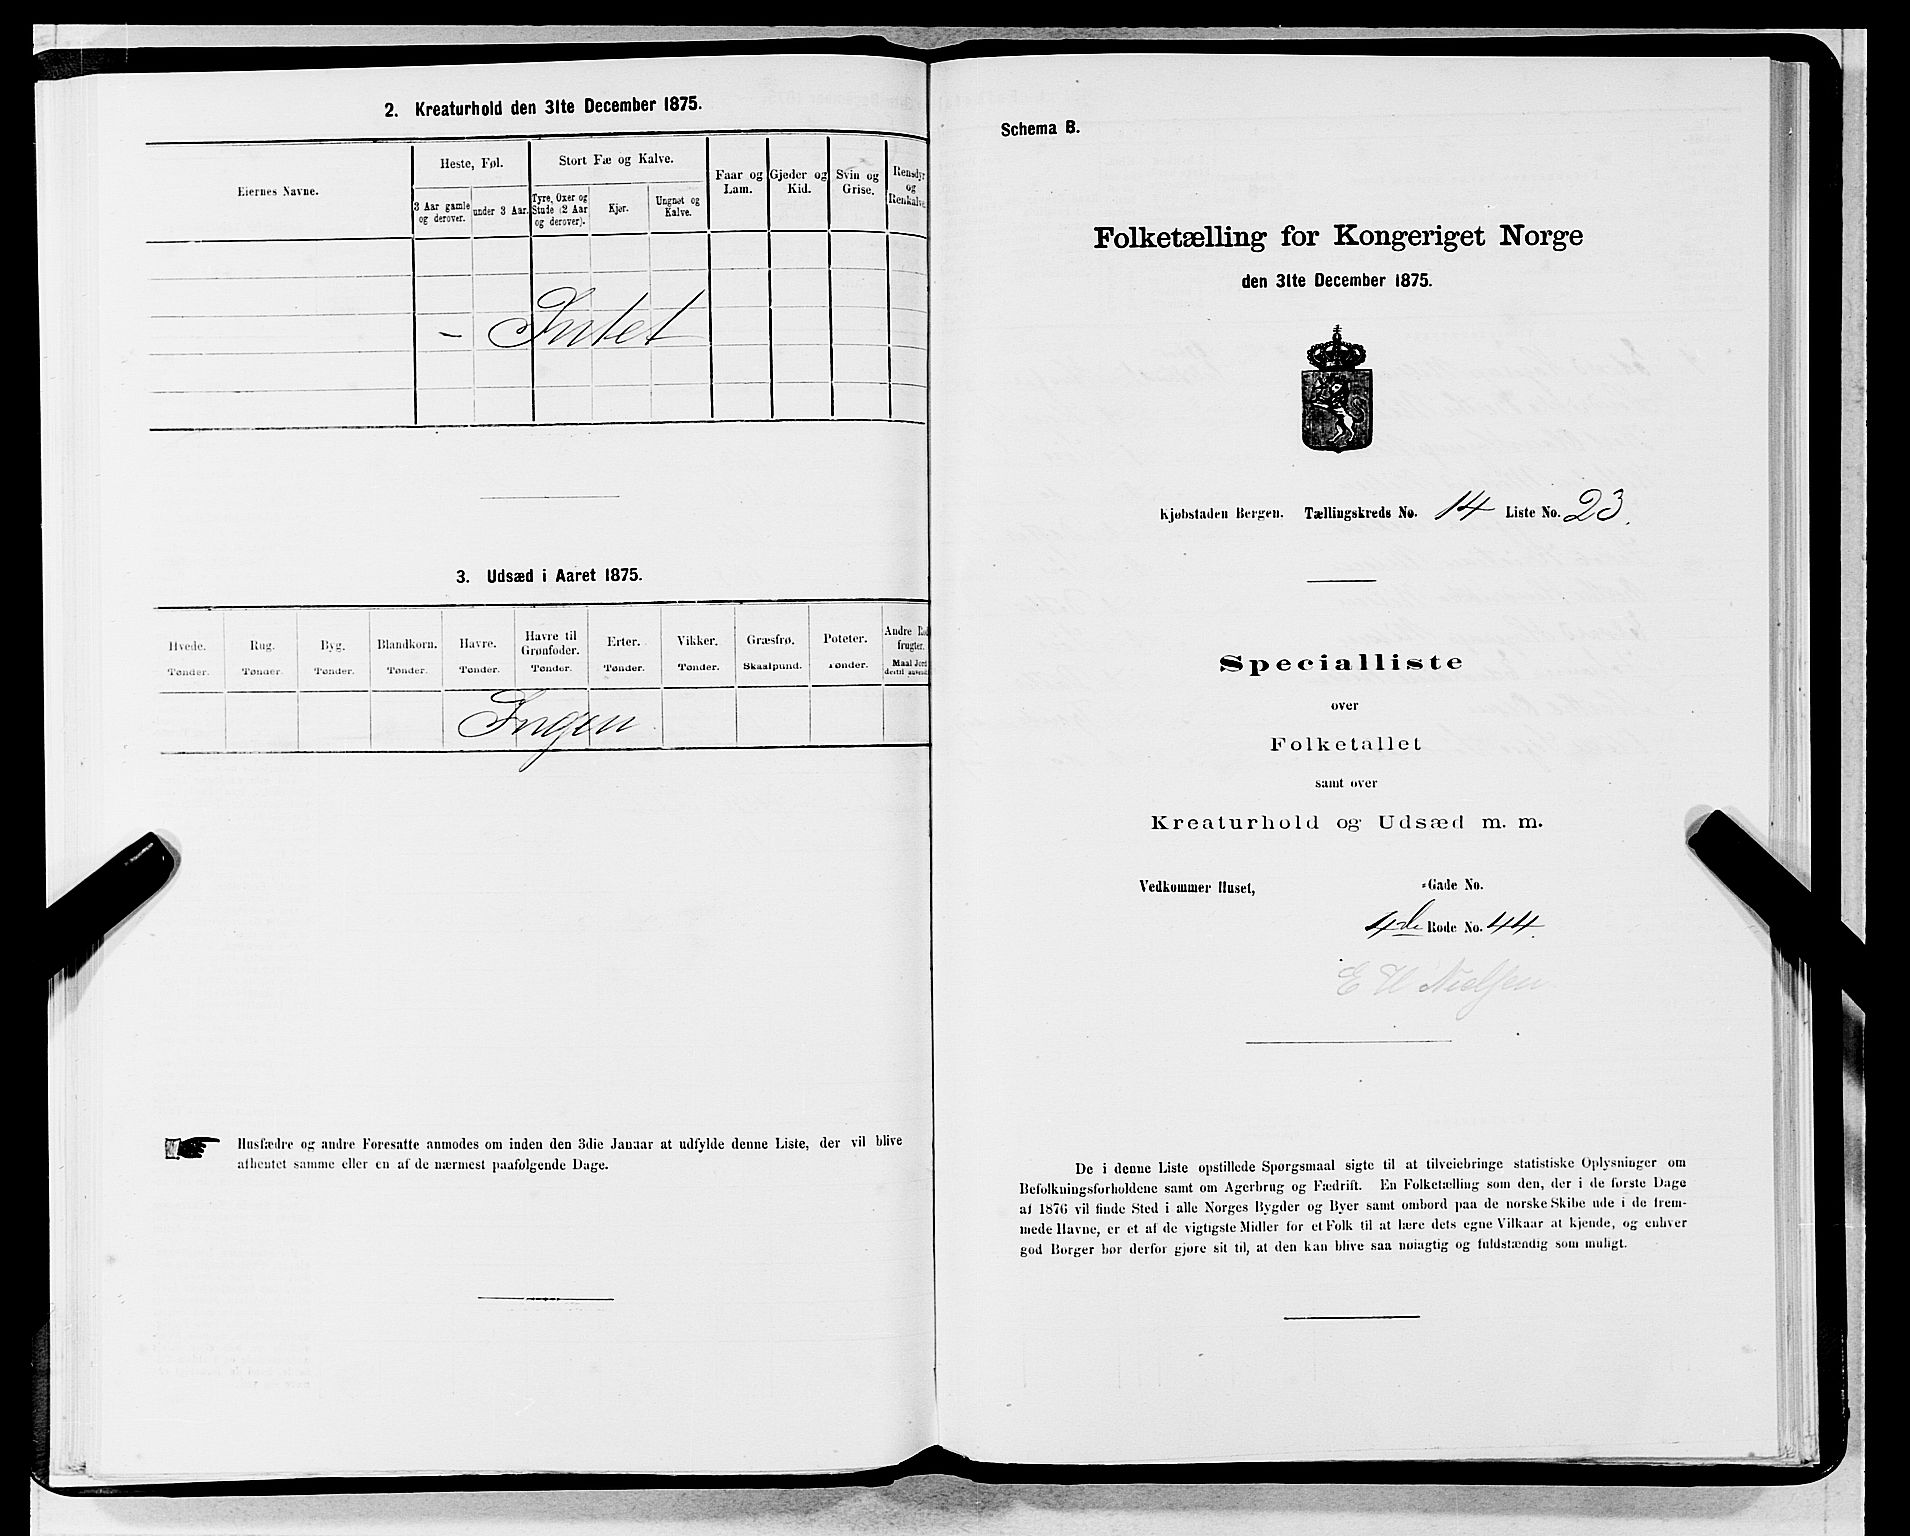 2. Kreaturhold den 31te December 1875.
Eiernes Navne.
Heste, Føl.
Stort Fæ og Kalve.
Faar og Lam.
Gjeder og Kid.
Svin og Grise.
Rensdyr og Renkalve.
3 Aar gamle og derover.
under 3 Aar.
Tyre, Oxer og Stude (2 Aar og derover).
Kjør.
Ungnøt og Kalve.
- Intet
3. Udsæd i Aaret 1875.
Hvede. Rug. Byg. Blandkorn. Havre. Havre til Grønfoder. Erter. Vikker. Græsfrø. Poteter. Andre Rodfrugter.
Tønder. Tønder. Tønder. Tønder. Tønder. Tønder. Tønder. Tønder. Skaalpund. Tønder. Maal Jord dertil anvendt
Ingen
Husfædre og andre Foresatte anmodes om inden den 3die Januar at udfylde denne Liste, der vil blive
afhentet samme eller en af de nærmest paafølgende Dage.
Schema B.
Folketælling for Kongeriget Norge
den 31te December 1875.
Kjøbstaden Bergen. Tællingskreds No. 14 Liste No. 23.
Specialliste
over
Folketallet
samt over
Kreaturhold og Udsæd m. m.
Vedkommer Huset, -Gade No.
4de Rode No. 44.
E H Nielsen
De i denne Liste opstillede Spørgsmaal sigte til at tilveiebringe statistiske Oplysninger om
Befolkningsforholdene samt om Agerbrug og Fædrift. En Folketælling som den, der i de første Dage
af 1876 vil finde Sted i alle Norges Bygder og Byer samt ombord paa de norske Skibe ude i de frem-
mede Havne, er et af de vigtigste Midler for et Folk til at lære dets egne Vilkaar at kjende, og enhver
god Borger bør derfor gjøre sit til, at den kan blive saa nøiagtig og fuldstændig som muligt.